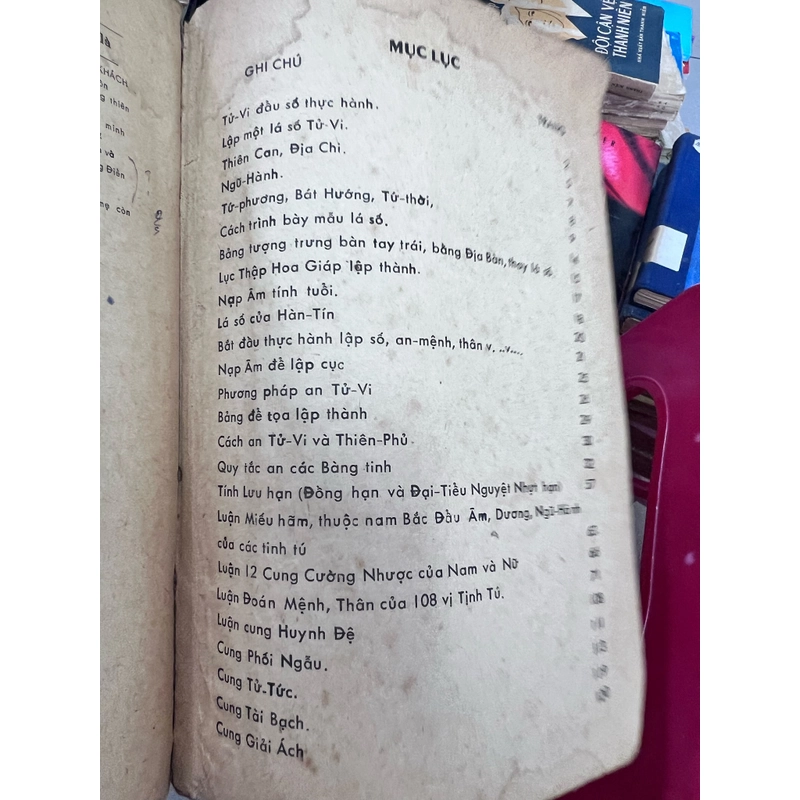 là
KHÁCH
thiên
mình
và
Điền
còn
ĐỘI CẬN VỆ
THANH NIÊN
MỤC LỤC
GHI CHÚ
Tử-Vi đẩu số thực hành.
Lập một lá số Tử-Vi.
Thiên Can, Địa Chi.
Ngũ-Hành.
Tứ-phương, Bát Hướng, Tứ-thời,
Cách trình bày mẫu lá số.
Bảng tượng trưng bàn tay trái, bằng Địa Bàn, thay lá số
Lục Thập Hoa Giáp lập thành.
Nạp Âm tính tuổi.
Lá số của Hàn-Tín
Bắt đầu thực hành lập số, an-mệnh, thân v. ..v....,
Nạp Âm để lập cục
Phương pháp an Tử-Vi
Bảng đề tọa lập thành
Cách an Tử-Vi và Thiên-Phủ
Quy tắc an các Bàng tinh
Tính Lưu hạn (Đồng hạn và Đại-Tiểu Nguyệt Nhựt hạn) 57
Luận Miếu hãm, thuộc nam Bắc Đẩu Âm, Dương, Ngũ-Hành
của các tinh tú
Luận 12 Cung Cường Nhược của Nam và Nữ
Luận Đoán Mệnh, Thân của 108 vị Tịnh Tú.
Luận cung Huynh Đệ
Cung Phối Ngẫu.
Cung Tử-Tức.
Cung Tài Bạch.
Cung Giải Ách